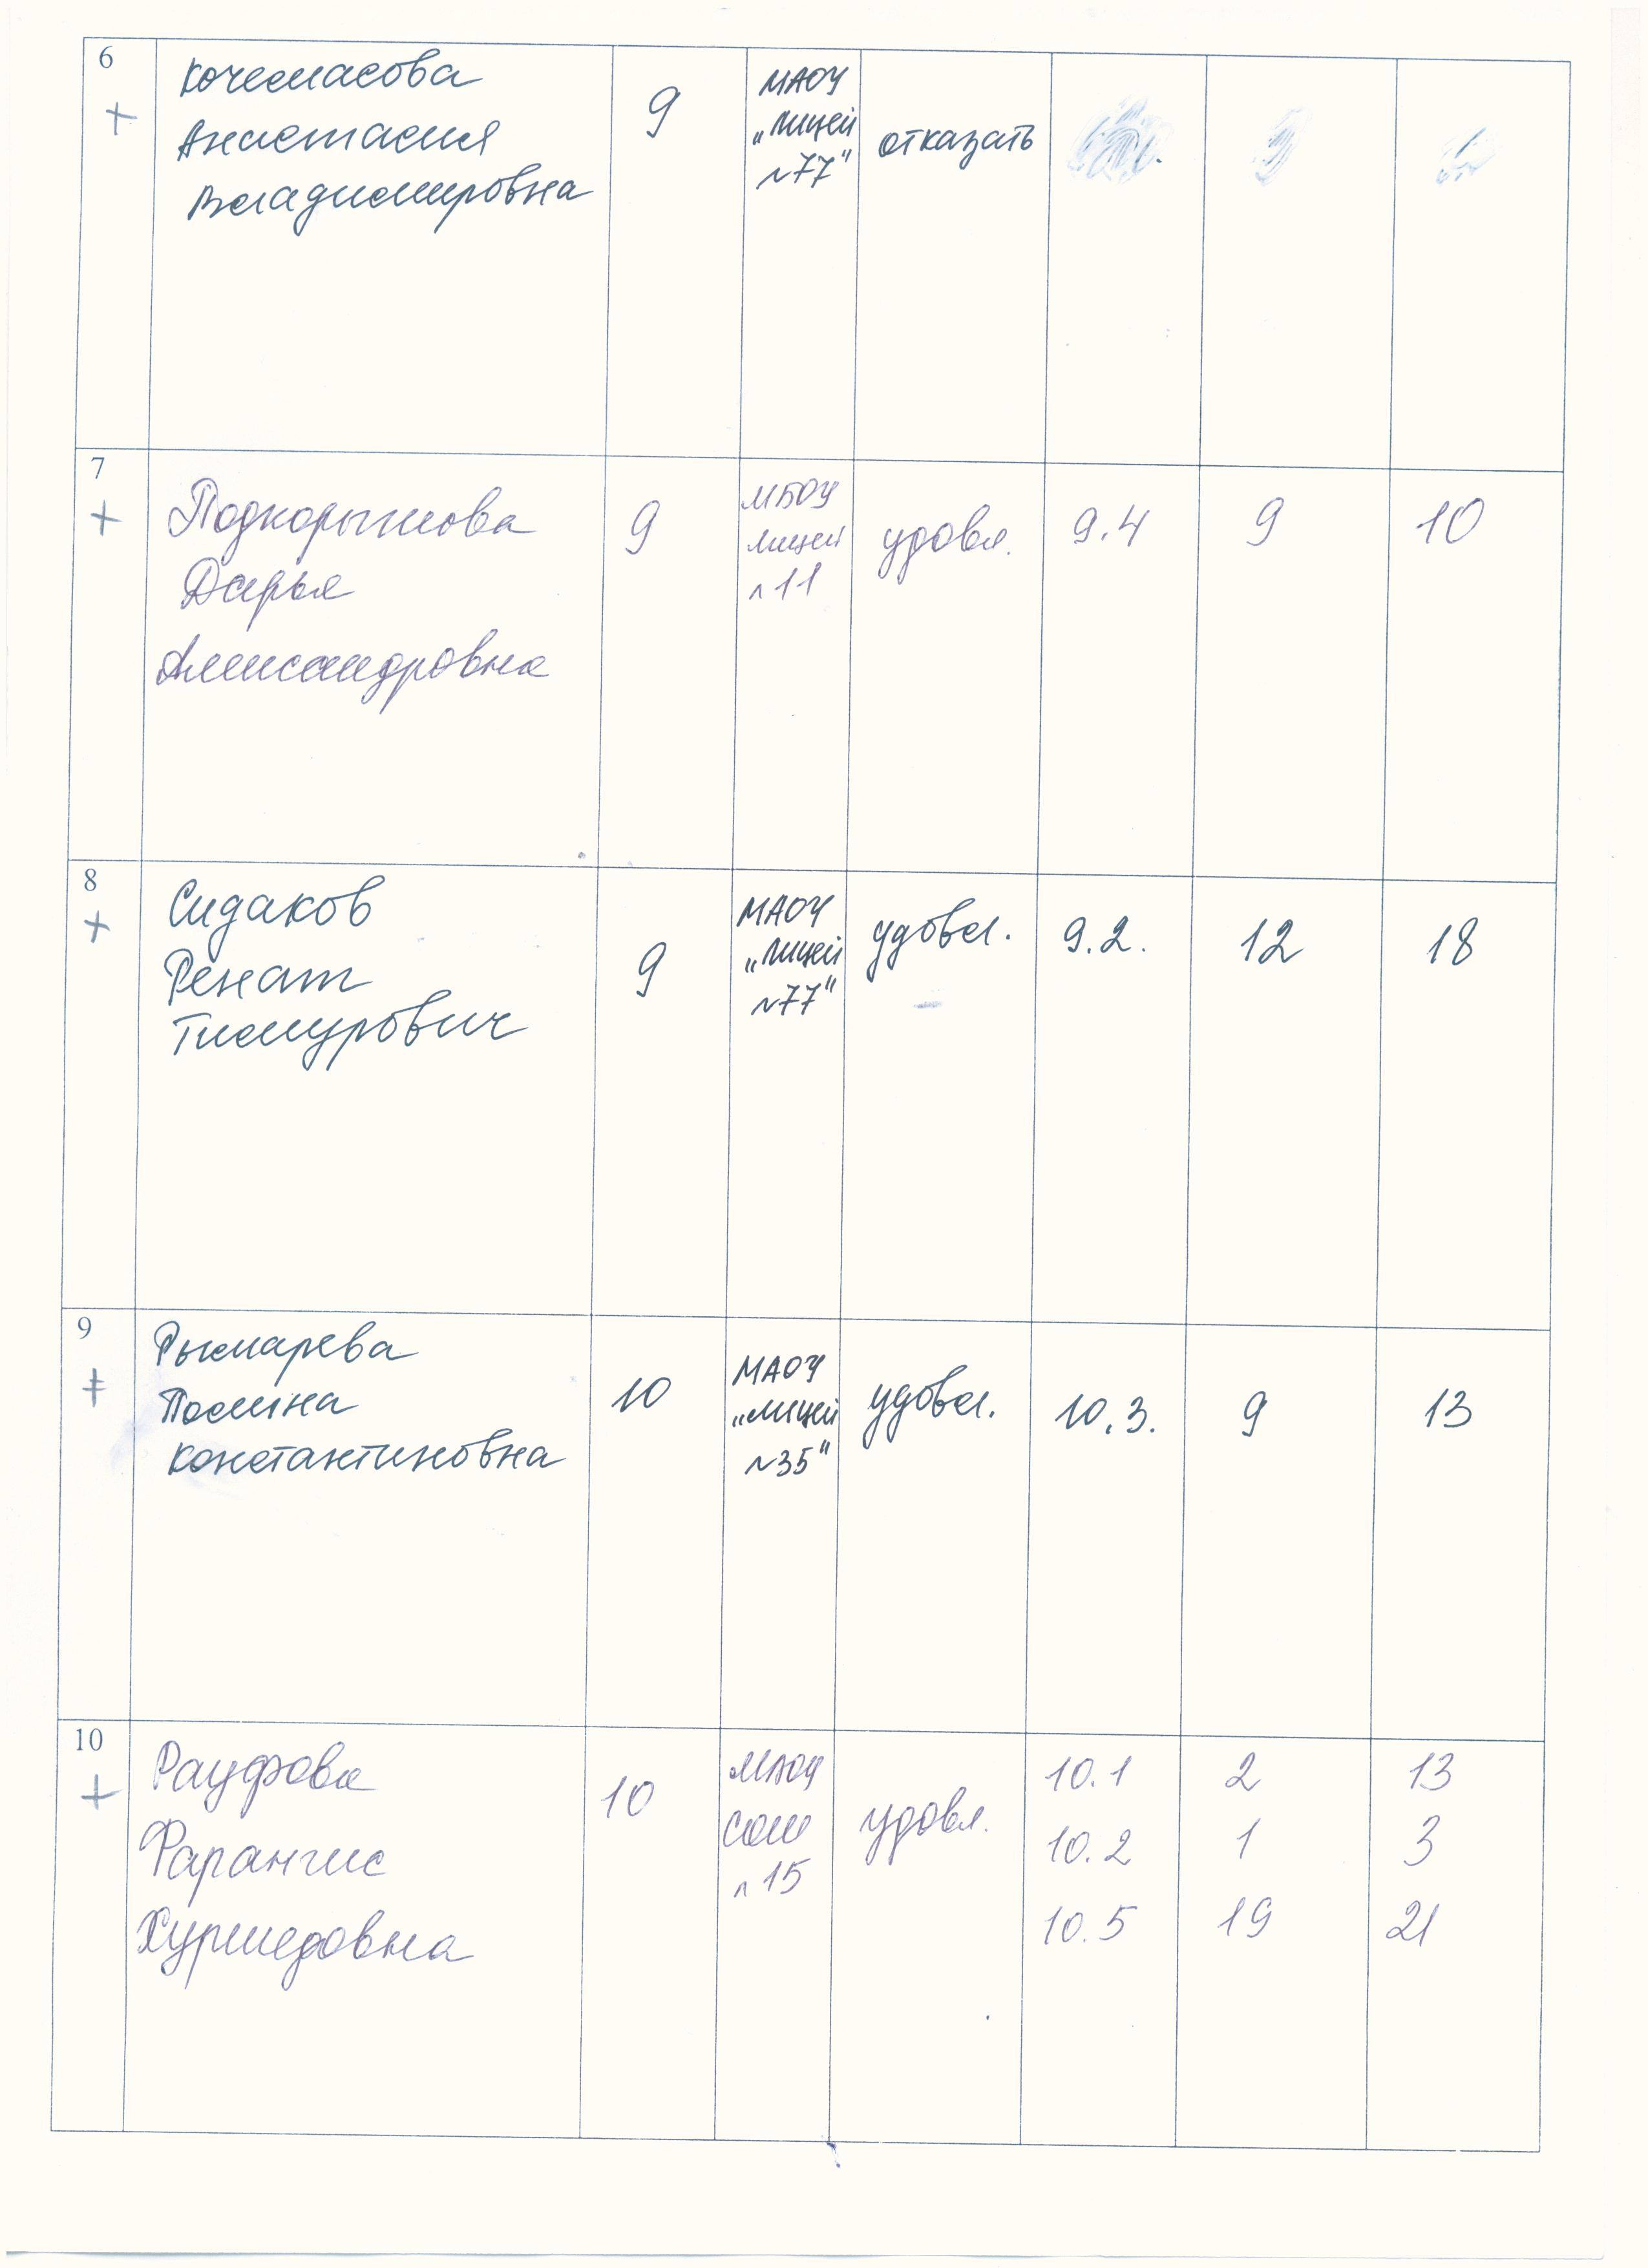 6
+
Кочемасова
Анастасия
Владимировна
9
МАОУ
„Лицей
№77"
отказать
7
+
Подкорытова
Дарья
Александровна
9
МБОУ
лицей
№11
удовл.
9.4
9
10
8
+
Сидаков
Ренат
Тимурович
9
МАОУ
„Лицей
№77"
удовл.
9.2.
12
18
9
+
Рымарева
Полина
Константиновна
10
МАОУ
„Лицей
№35"
удовл.
10.3.
9
13
10
+
Рауфова
Фарангис
Хуршедовна
10
МАОУ
СОШ
№15
удовл.
10.1 2 13
10.2 1 3
10.5 19 21